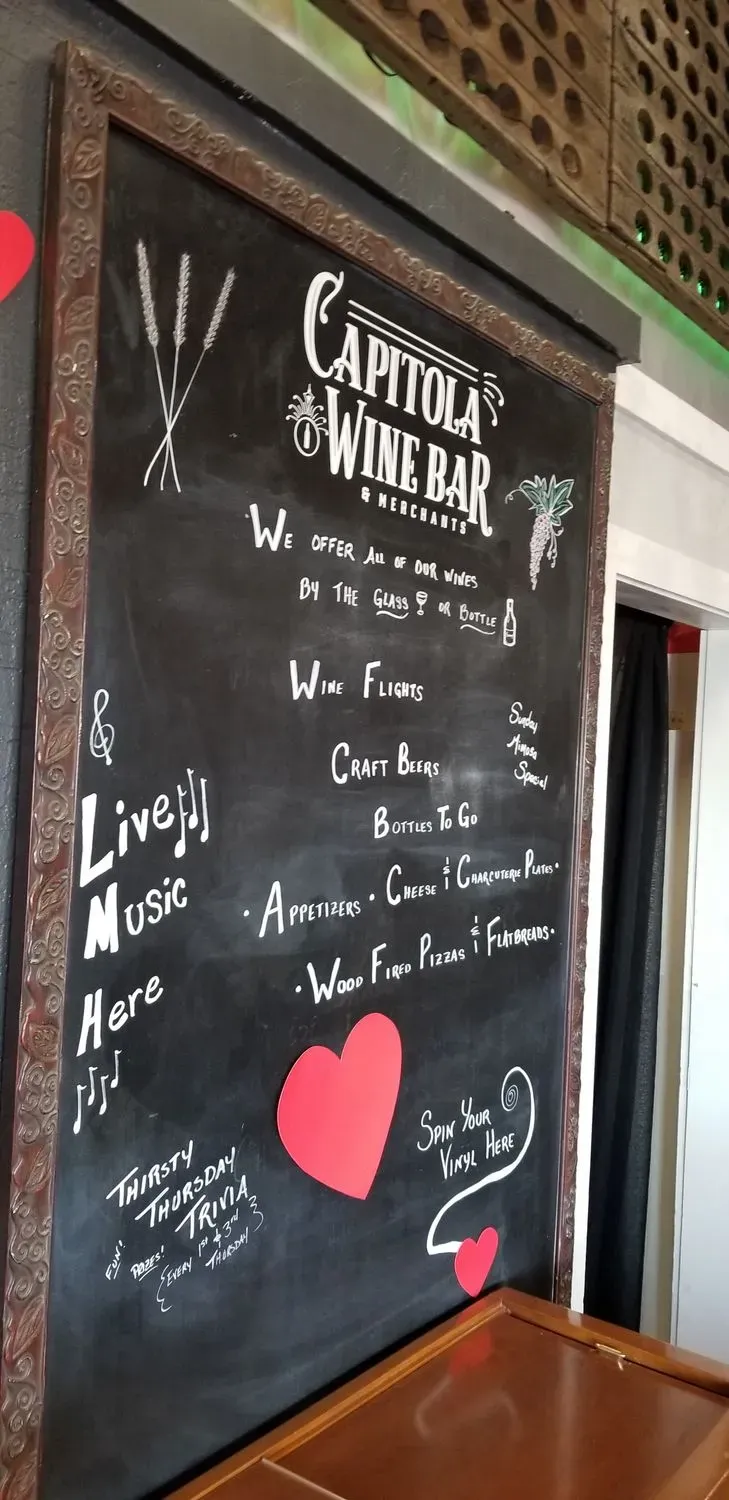 CAPITOLA
WINE BAR
& MERCHANTS
WE OFFER ALL OF OUR WINES
BY THE GLASS OR BOTTLE
WINE FLIGHTS
CRAFT BEERS
BOTTLES TO GO
· APPETIZERS · CHEESE & CHARCUTERIE PLATES ·
· WOOD FIRED PIZZAS & FLATBREADS ·
Sunday
Mimosa
Special
Live
Music
Here
SPIN YOUR
VINYL HERE
THIRSTY
THURSDAY
TRIVIA
FUN! PRIZES! {EVERY 1st & 3rd
THURSDAY}